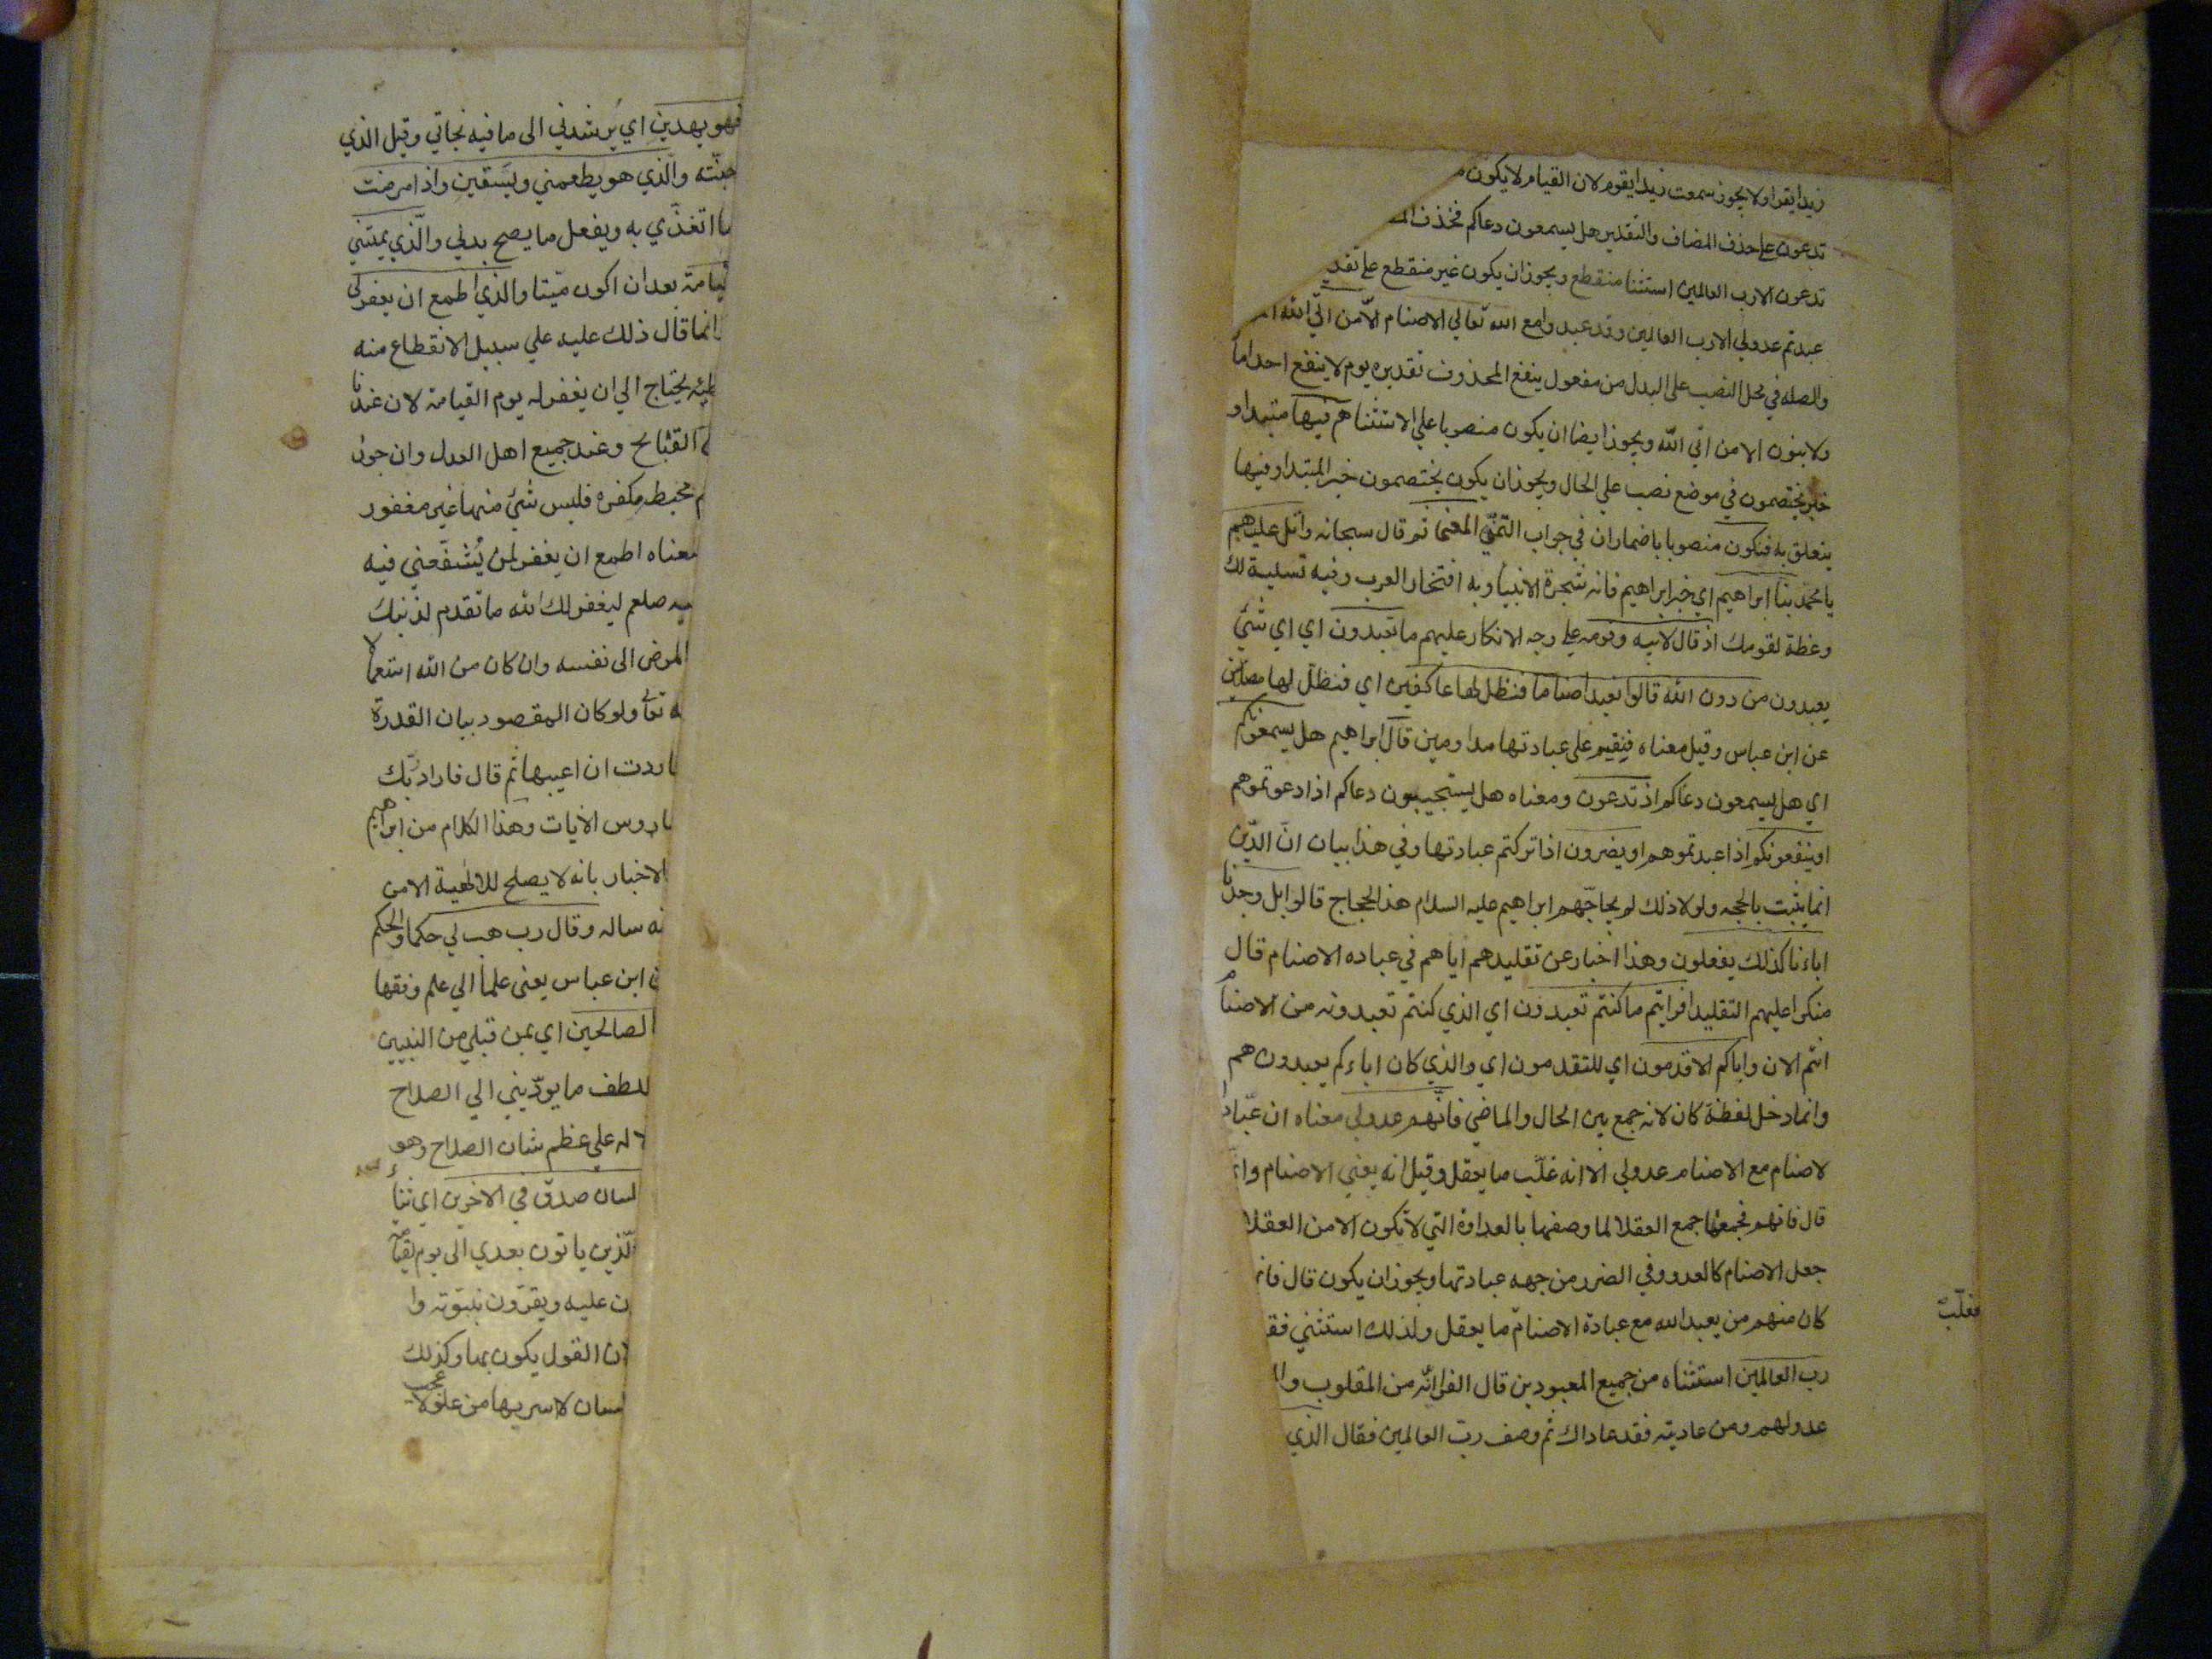 زيدا يقرا ولا يجوز سمعت زيدا يقوم لان القيام لا يكون م
تدعون علي حذف المضاف والتقدير هل يسمعون دعاكم فحذف الم
تدعون الارب العالمين استثنا منقطع ويجوز ان يكون غير منقطع علي تقدير
عبدتم عدولي الارب العالمين وقد عبدوا مع الله تعالي الاصنام الا من اتي الله
والصله في محل النصب علي البدل من مفعول ينفع المحذوف تقديره يوم لا ينفع احدا ما
ولا بنون الا من اتي الله ويجوز ايضا ان يكون منصوبا علي الاستثنا هم فيها مبتدا و
خبر يختصمون في موضع نصب علي الحال ويجوز ان يكون يختصمون خبر المبتدا وفيها
يتعلق به فنكون منصوبا باضمار ان في جواب التمني المعنا ثم قال سبحانه واتل عليهم
يا محمد نبا ابراهيم اي خبر ابراهيم فانه شجرة الانبيا وبه افتخار العرب وفيه تسلية لك
وعظة لقومك اذ قال لابيه وقومه علي وجه الانكار عليهم ما تعبدون اي اي شئ
يعبدون من دون الله قالوا نعبد اصناما فنظل لها عاكفين اي فنظل لها مصلين
عن ابن عباس وقيل معناه فنقيم علي عبادتها مداومين قال ابراهيم هل يسمعونكم
اي هل يسمعون دعاكم اذ تدعون ومعناه هل يستجيبون دعاكم اذا دعوتموهم
او ينفعونكم اذا عبدتموهم او يضرون اذا تركتم عبادتها وفي هذا بيان ان الدين
انما يثبت بالحجه ولولا ذلك لم يحاجهم ابراهيم عليه السلام هذا الحجاج قالوا بل وجدنا
اباءنا كذلك يفعلون وهذا اخبار عن تقليدهم اياهم في عباده الاصنام قال
منكرا عليهم التقليد افرايتم ما كنتم تعبدون اي الذي كنتم تعبدونه من الاصنام
انتم الان واباكم الاقدمون اي المتقدمون اي والذي كان اباءكم يعبدون هم
وانما دخل لفظة كان لانه جمع بين الحال والماضي فانهم عدولي معناه ان عباد
لاصنام مع الاصنام عدولي الا انه غلب ما يعقل وقيل انه يعني الاصنام وا
قال فانهم فجمعها جمع العقلا لما وصفها بالعداوة التي لا تكون الا من العقلا
جعل الاصنام كالعدو في الضرر من جهه عبادتها ويجوز ان يكون قال فا
كان منهم من يعبد الله مع عبادة الاصنام ما يعقل ولذلك استثني فق
فغلب
رب العالمين استثناه من جميع المعبودين قال الفرا انه من المقلوب وا
عدولهم ومن عاديته فقد عاداك ثم وصف رب العالمين فقال الذي
فهو يهدين اي يرشدني الي ما فيه نجاتي وقيل الذي
جنته والذي هو يطعمني ويسقين واذا مرضت
ما اتغذي به ويفعل ما يصح بدني والذي يميتني
يامة بعد ان اكون ميتا والذي اطمع ان يغفر لي
انما قال ذلك عليه علي سبيل الانقطاع منه
يحتاج الي ان يغفر له يوم القيامة لان عندنا
القبايح وعند جميع اهل العدل وان جوز
محبط مكفره فليس شئ منها غير مغفور
معناه اطمع ان يغفر لمن يشفعني فيه
صلعم ليغفر لك الله ما تقدم لذنبك
المرض الي نفسه وان كان من الله استعمالا
تعالي ولو كان المقصود بيان القدرة
اردت ان اعيبها ثم قال فاراد ربك
دوس الايات وهذا الكلام من ابراهيم
الاخبار بانه لا يصلح للالهية الا من
نه ساله وقال رب هب لي حكما والحكم
ابن عباس يعني علما الي علم وفقها
الصالحين اي بمن قبلي من النبيين
للطف ما يودّيني الي الصلاح
لاله علي عظم شان الصلاح وهو
لسان صدق في الاخرين اي ثناء
الذين ياتون بعدي الي يوم القيامة
ن عليه ويقرون بنبوته وا
لان القول يكون بها وكذلك
لسان لا سر بها من علو لا عجب